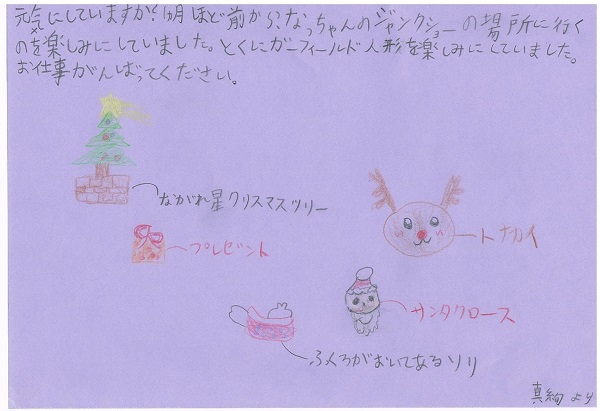 元気にしていますか?1ヵ月ほど前から、なっちゃんのジャンクショーの場所に行く
のを楽しみにしていました。とくにガーフィールド人形を楽しみにしていました。
お仕事がんばってください。
ながれ星クリスマスツリー
プレゼント
トナカイ
サンタクロース
ふくろがおいてあるソリ
真絢より